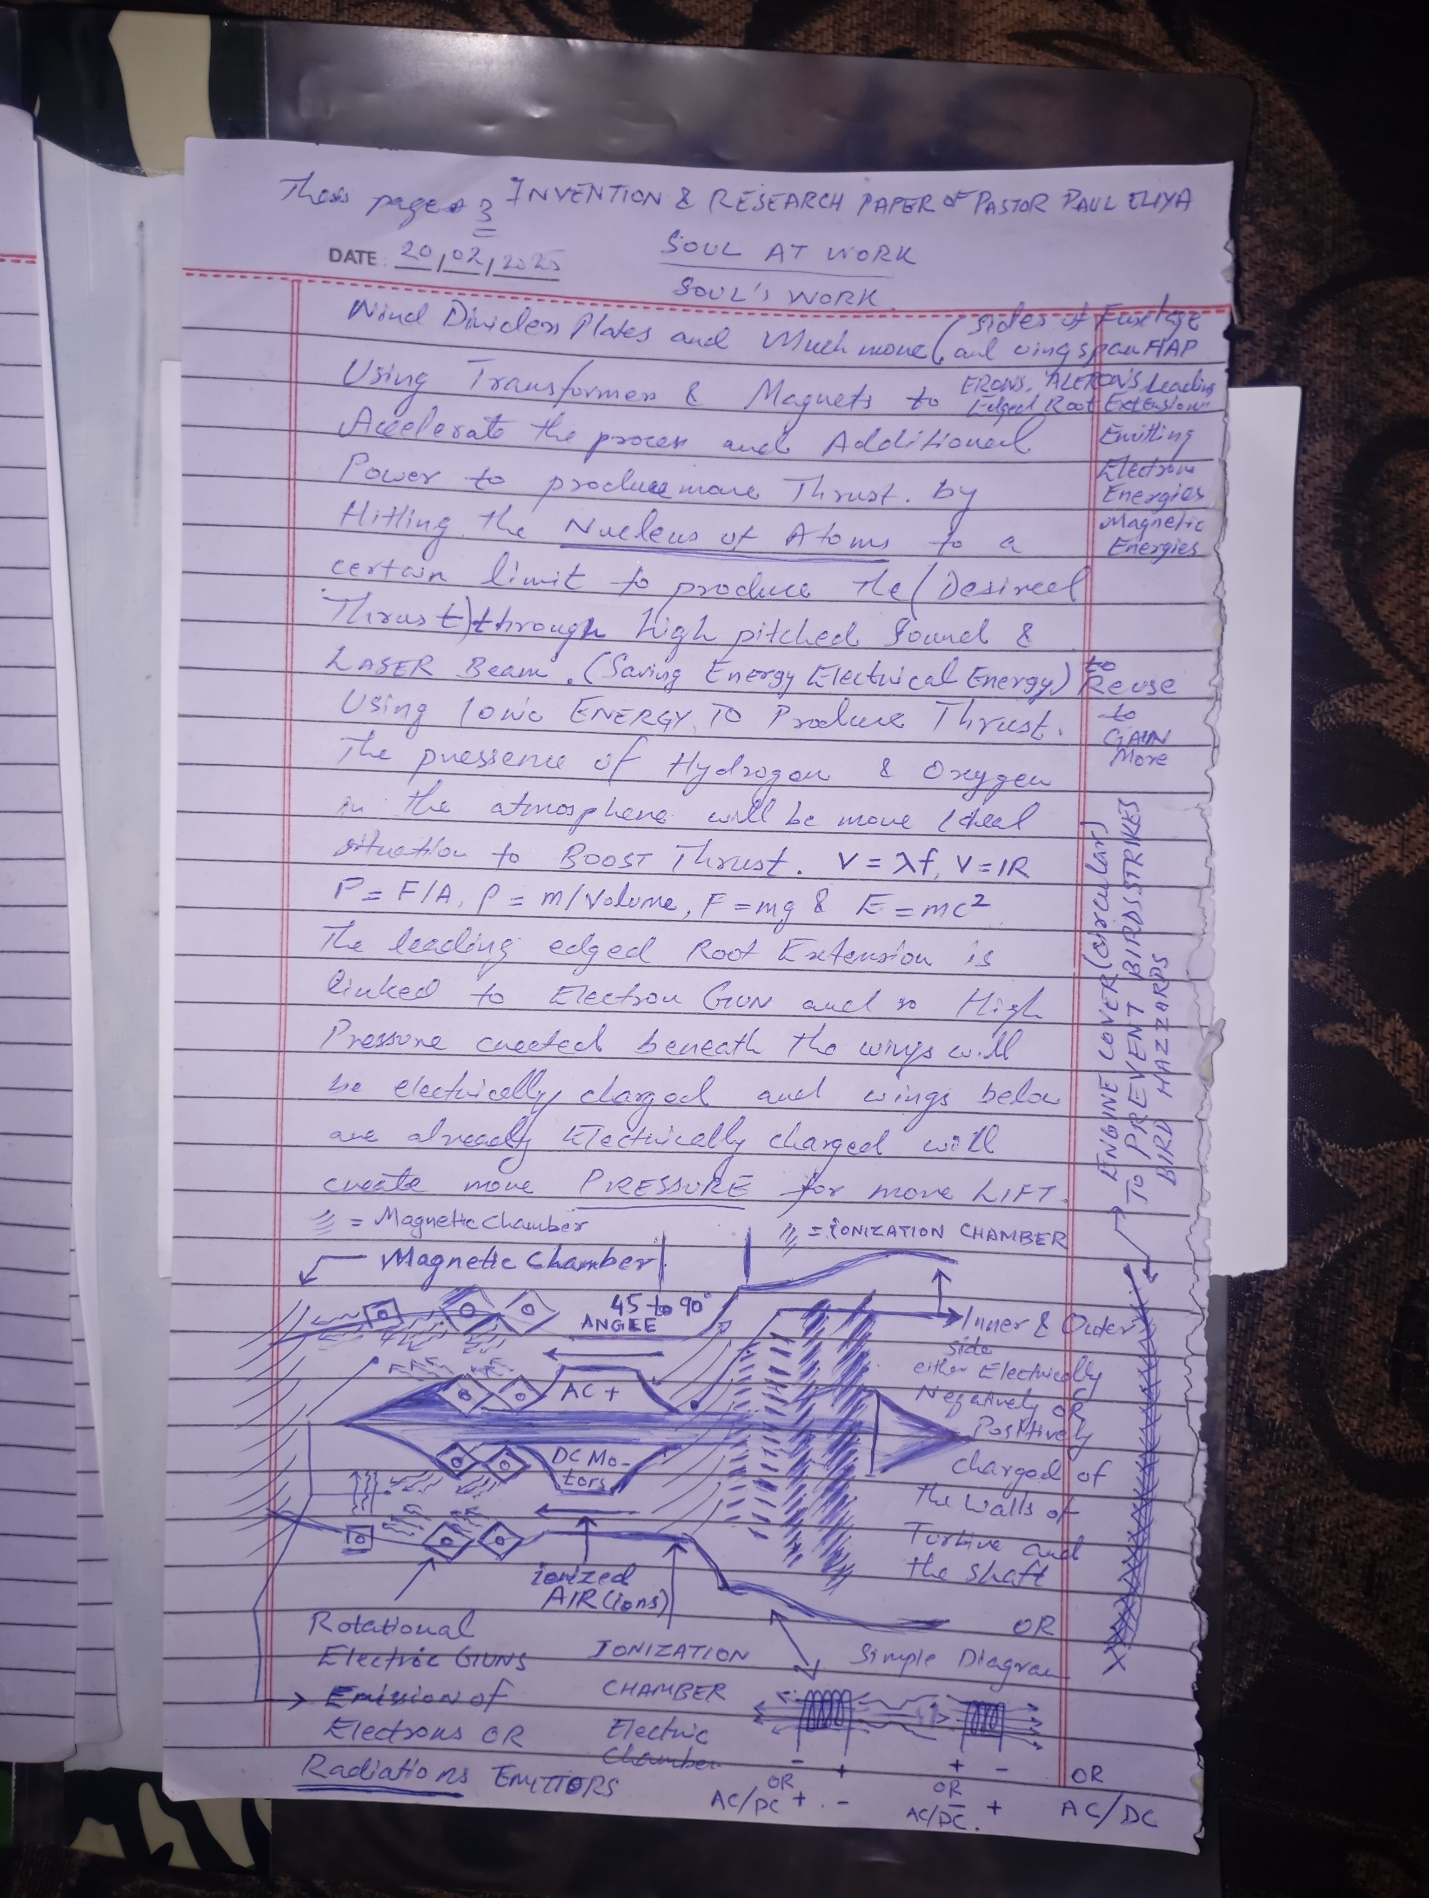 Thesis page 3 INVENTION & RESEARCH PAPER OF PASTOR PAUL ELIYA
DATE 20/02/2025
SOUL AT WORK
SOUL'S WORK.
Wind Dividers Plates and Much more (sides of Fuselage
and wing span FLAP
Using Transformers & Magnets to
ERONS, 'ALERON'S Leading
Edged Root Extension"
Accelerate the process and Additional
Emitting
Electron
Energies
Magnetic
Energies
Power to produce more Thrust. by
Hitting the Nucleus of Atoms to a
certain limit to produce the (Desired
Thrust) through high pitched Sound &
LASER Beam. (Saving Energy Electrical Energy) to
Reuse
to
GAIN
More
Using Ionic ENERGY TO Produce Thrust.
The pressence of Hydrogen & Oxygen
in the atmosphere will be more Ideal
situation to BOOST Thrust. V = λf, V = IR
P = F/A, ρ = m/Volume, F = mg & E = mc²
The leading edged Root Extension is
linked to Electron GUN and so High
Pressure created beneath the wings will
be electrically charged and wings below
are already Electrically charged will
create more PRESSURE for more LIFT.
ENGINE COVER (circular)
TO PREVENT BIRDS STRIKES
BIRD HAZZARDS
= Magnetic Chamber
= IONIZATION CHAMBER
Magnetic Chamber
45 to 90°
ANGLE
AC +
DC Mo-
tors
Inner & Outer
side
either Electrically
Negatively OR
Positively
charged of
the walls of
Turbine and
the shaft
ionized
AIR (ions)
OR
Rotational
Electric GUNS
Emission of
Electrons OR
Radiations EMITTORS
IONIZATION
CHAMBER
Electric
Chamber
Simple Diagram
- +
OR
AC/DC + -
+ -
OR
AC/DC. - +
OR
AC/DC